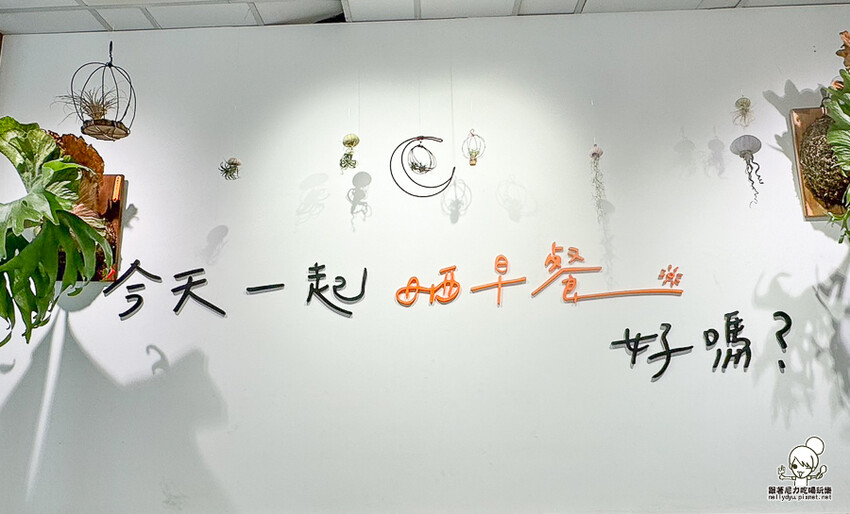 今天一起 晒早餐 樂
好嗎?
跟著尼力吃喝玩樂
nellydyu.pixnet.net